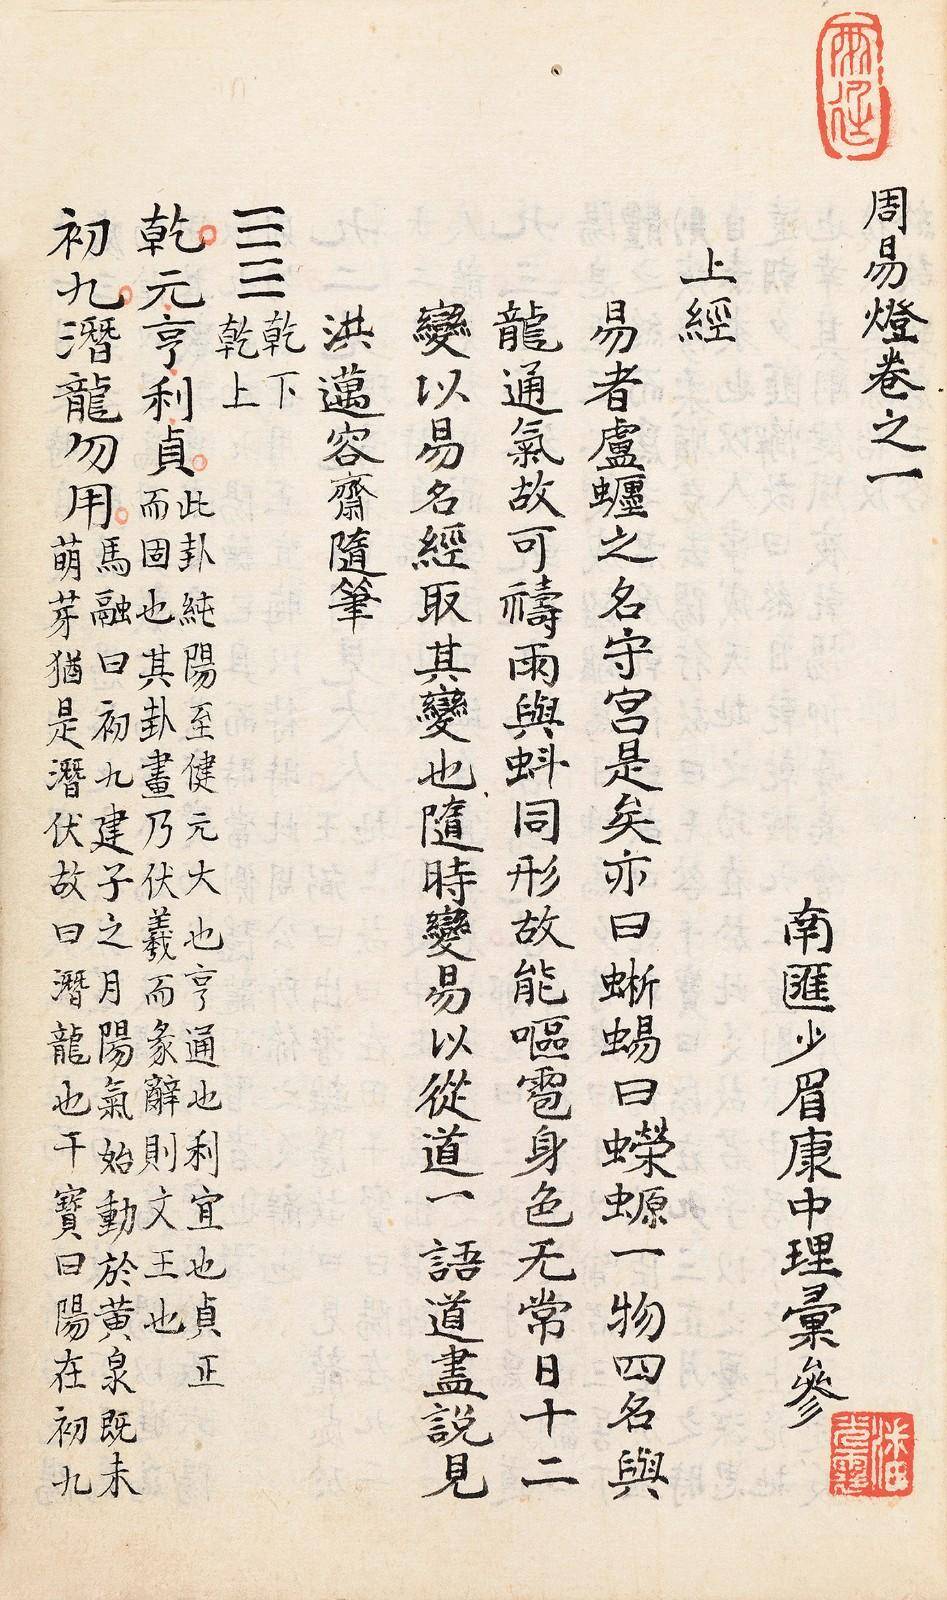 周易燈卷之一
南匯少眉康中理彙參
上經
易者盧蠦之名守宮是矣亦曰蜥蜴曰蠑螈一物四名與
龍通氣故可禱雨與蚪同形故能嘔雹身色无常日十二
變以易名經取其變也隨時變易以從道一語道盡說見
洪邁容齋隨筆
乾下
乾上
乾元亨利貞此卦純陽至健元大也亨通也利宜也貞正
而固也其卦畫乃伏羲而彖辭則文王也
初九潛龍勿用馬融曰初九建子之月陽氣始動於黃泉既未
萌芽猶是潛伏故曰潛龍也干寶曰陽在初九